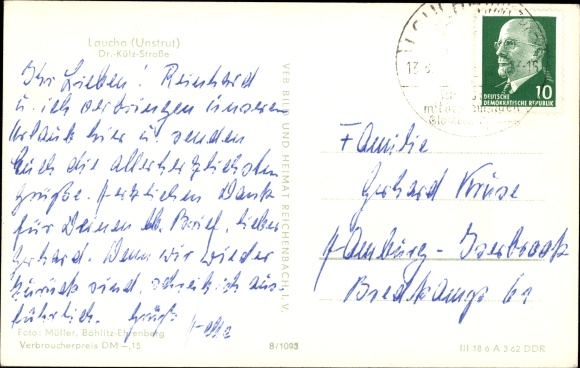 Laucha (Unstrut)
Dr.-Külz-Straße
Ihr Lieben! Reinhard
u. ich verbringen unseren
Urlaub hier u. senden
Euch die allerherzlichsten
Grüße. Herzlichen Dank
für Deinen lb. Brief, lieber
Gerhard. Wenn wir wieder
zurück sind, schreib ich aus-
führlich. Grüß
Foto: Müller, Böhlitz-Ehrenberg
Verbraucherpreis DM –,15
8/1093
VEB BILD UND HEIMAT REICHENBACH I. V.
DEUTSCHE
DEMOKRATISCHE REPUBLIK
10
Familie
Gerhard Kruse
Hamburg-Iserbrook
Bredkamp 61
III 18 6 A 3 62 DDR